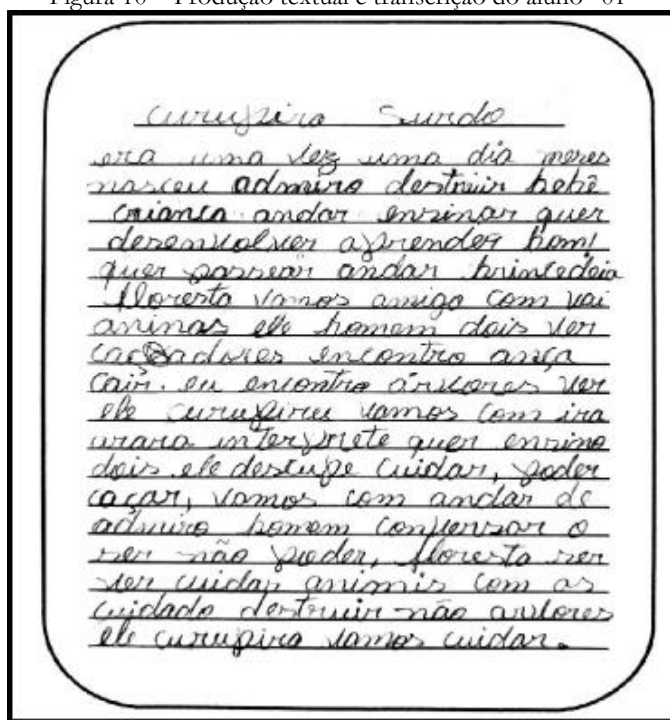 Figura 10 – Produção textual e transcrição do aluno 01
curupira Surdo
era uma vez uma dia meres
nasceu admiro destruir bebê
criança andar ensinar quer
desenvolver aprender bom!
quer passear andar brincedeia
floresta vamos amigo com vai
aninas ele homem dois ver
caçadores encontro ança
cair. eu encontro árvcores ver
ele curupiru vamos com ira
urara interprete quer ensino
dois ele desculpe cuidar, poder
caçar, vamos com andar de
admiro homem conversar o
ser não poder, floresta ser
ver cuidar animis com as
cuidado destruir não arvlores
ele curupira vamos cuidar.